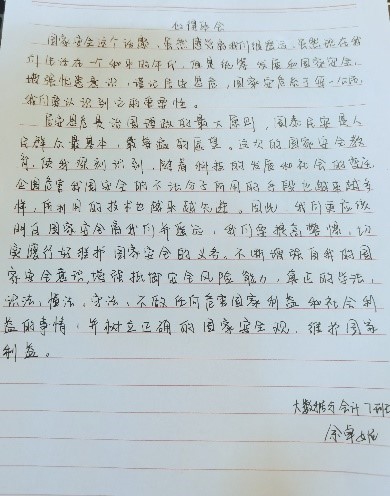 心得体会
国家安全这个话题,虽然感觉离我们很遥远,虽然现在我
们生活在一个和平的年代,但是统筹发展和国家安全,
增强忧患意识,谨记居安思危,国家安危系于每一公民,
我们要认识到它的重要性。
居安思危是治国理政的最大原则,国泰民安是人
民群众最基本,最普遍的愿望。这次的国家安全教
育,使我深刻认识到,随着科技的发展和社会的变迁
企图危害我国安全的不法分子所用的手段也越来越多
样,所利用的技术也越来越先进。因此,我们更应该
明白国家安全离我们并不遥远,我们要提高警惕,切
实履行好维护国家安全的义务。不断增强自我的国
家安全意识,增强抵御安全风险能力,真正的学法,
识法,懂法,守法,不做任何危害国家利益和社会利
益的事情,并树立正确的国家安全观,维护国家
利益。
大数据与会计7班
余卓